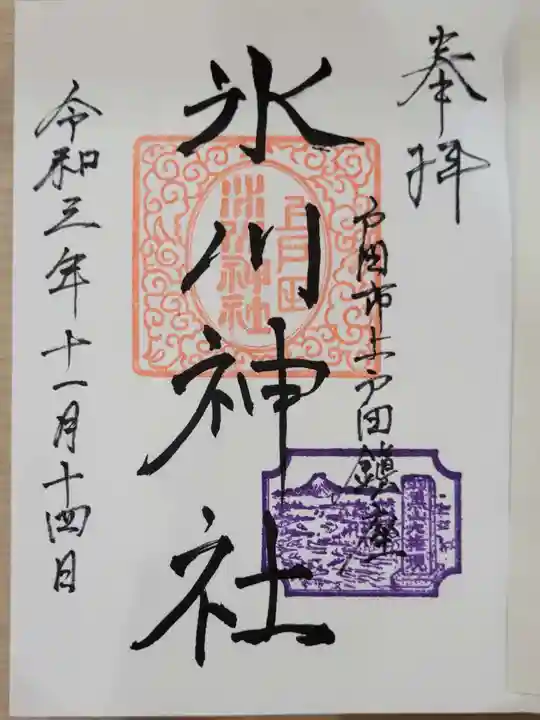 奉拝
戸田市上戸田鎮座
氷川神社
上戸田
氷川神社
令和三年十一月十四日